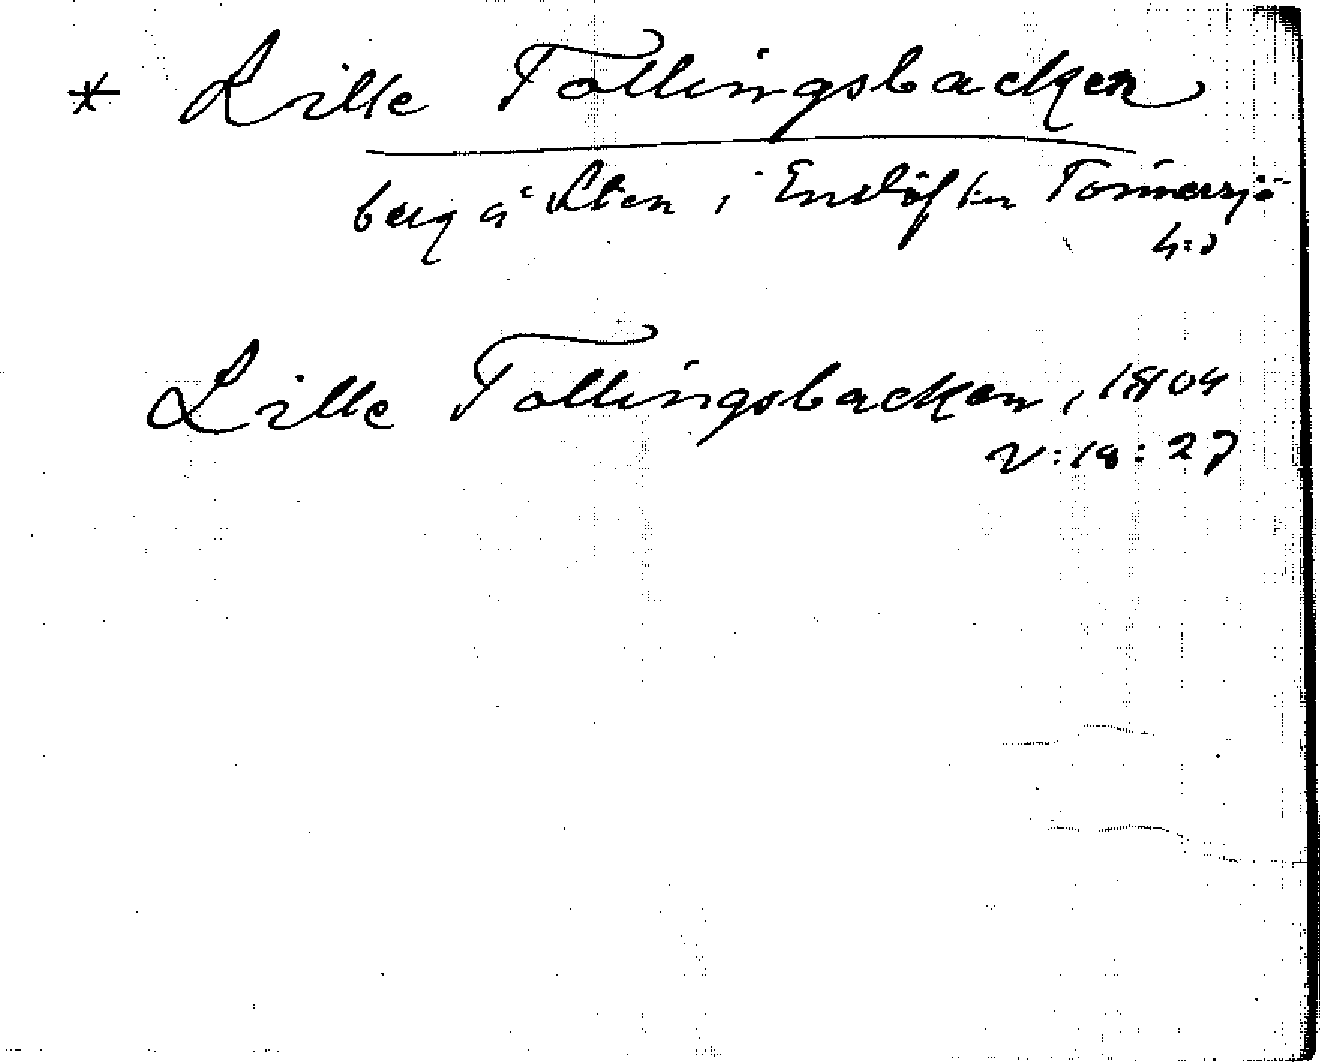 * Lille Tollingsbacken
berg å Sten i Enslöfs sn Tönnersjö
h:d
Lille Tollingsbacken, 1804
V:18:27